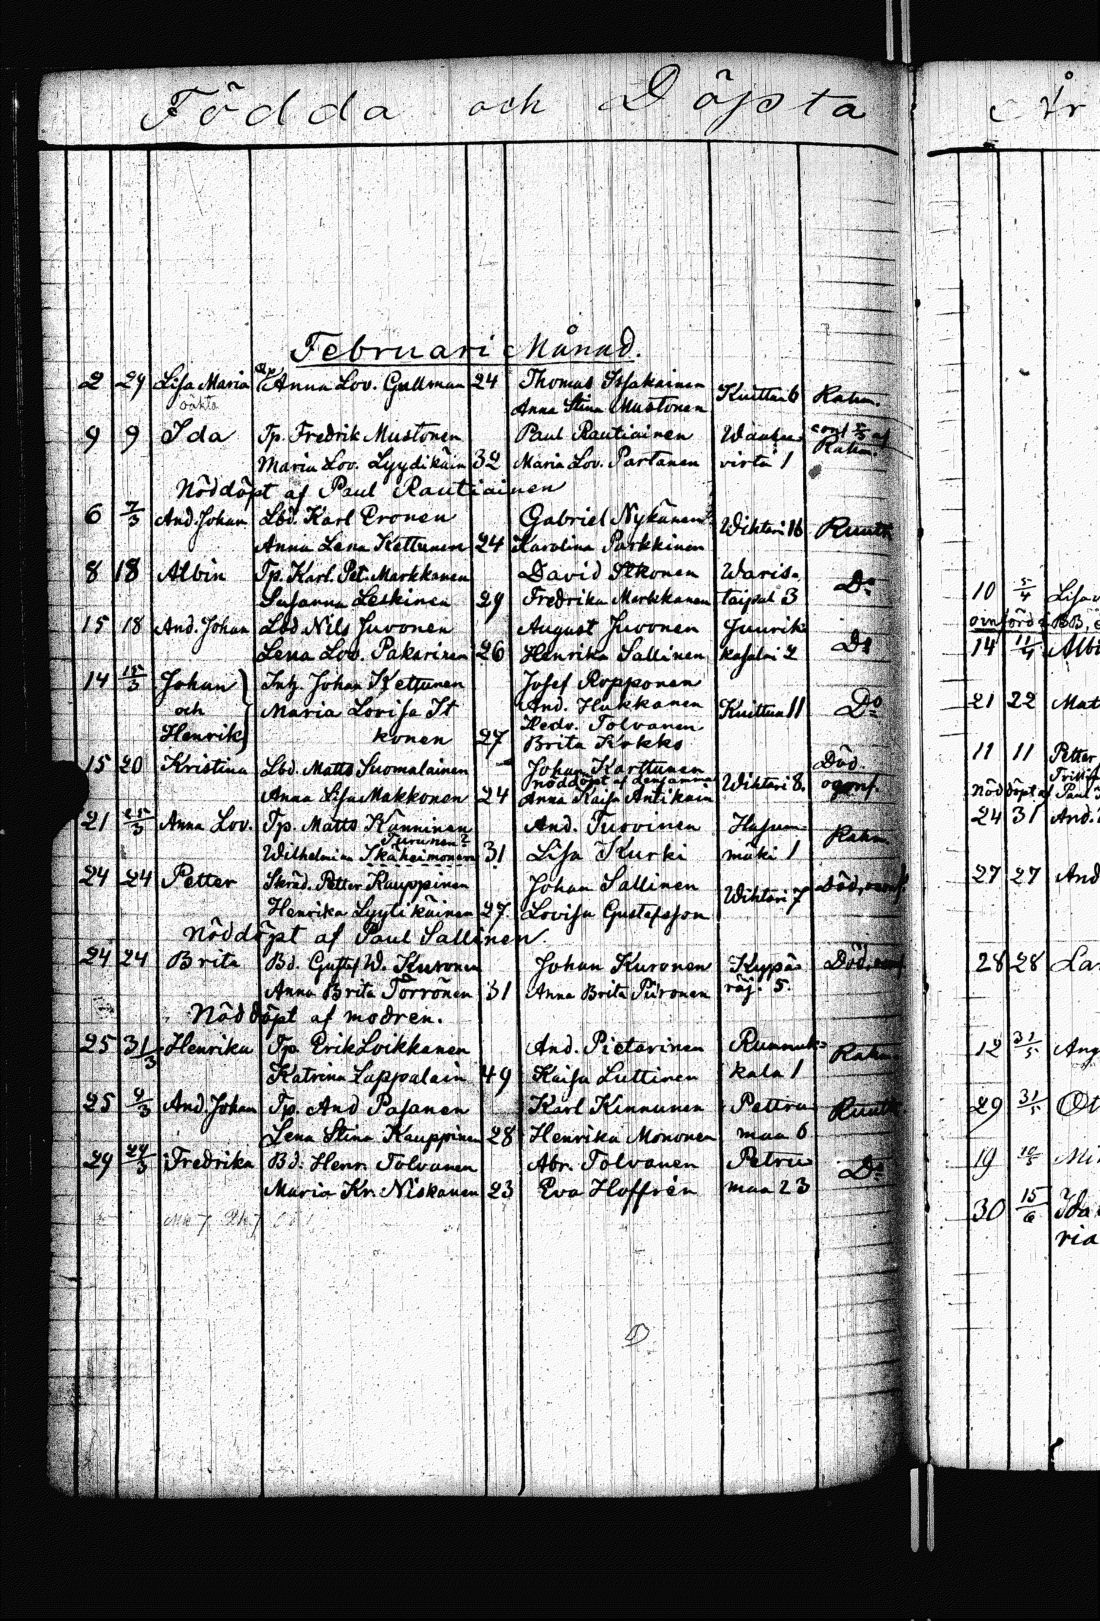 Födda och Döpta
År
Februari Månad.
2 29 Lisa Maria Anna Lov. Gullman 24 Thomas Issakainen Kuittua 6 Rahm.
oäkta Anna Stina Mustonen
9 9 Ida Tp. Fredrik Mustonen Paul Rautiainen conf af
Maria Lov. Lyydikäin 32 Maria Lov. Partanen virta 1 Rahm.
Nöddöpt af Paul Rautiainen
6 7/3 And. Johan Lbd. Karl Eronen Gabriel Nykänen Wihtari 16 Ruuth
Anna Lena Kettunen 24 Karolina Parkkinen
8 18 Albin Tp. Karl. Pet. Markkanen David Itkonen Waris- Do
Susanna Leskinen 29 Fredrika Markkanen taipal 3
15 18 And. Johan Lbd Nils Juvonen August Juvonen Juurik- Do
Lena Lov. Pakarinen 26 Henrika Sallinen kasalmi 2
14 15/3 Johan Inh. Johan Kettunen Josef Ropponen
och Maria Lovisa It And. Hukkanen Kuittua 11 Do
Henrik konen 27 Hedv. Tolvanen
Brita Kokko
15 20 Kristina Lbd. Matts Suomalainen Johan Karttunen Död.
nöddöpt af densamma Wihtari 8. ogonf.
Anna Lisa Makkonen 24 Anna Kaisa Antikain
21 25/3 Anna Lov. Tp. Matts Kunninen And. Turvinen Hasum- Rahm
Turunen?
Wilhelmina Ikäheimonen 31 Lisa Kurki mäki 1
24 24 Petter Skräd. Petter Kauppinen Johan Sallinen Wihtari 7
Henrika Lyytikäinen 27. Lovisa Gustafsson
Nöddöpt af Paul Sallinen.
24 24 Brita Bd. Gustaf W. Kuronen Johan Kuronen Kypä-
Anna Brita Törrönen 31 Anna Brita Piironen räj. 5.
Nöddöpt af modren.
25 31/3 Henrika Tp. Erik Loikkanen And. Pietarinen Rummuk- Rahm
Katrina Lappalain 49 Kaisa Luttinen kala 1
25 9/3 And. Johan Tp. And Pasanen Karl Kinnunen Petru Ruuth
Lena Stina Kauppinen 28 Henrika Mononen maa 6
29 24/3 Fredrika Bd. Henr. Tolvanen Abr. Tolvanen Petru Do
Maria Kr. Niskanen 23 Eva Hoffrén maa 23
10 5/4
14 11/4
21 22 Mat
11 11 Petter
Nöddöpt af Paul
24 31 And.
27 27 And
28 28
12 31/5
29 31/5
19 10/5
30 15/6 Ida
ria